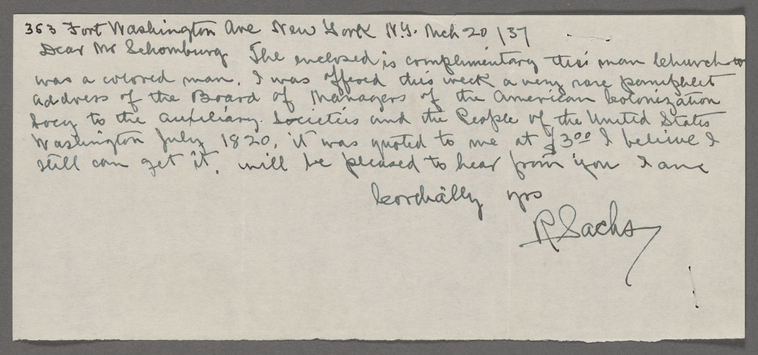 363 Fort Washington Ave New York N.Y. Mch 20/37
Dear Mr Schomburg The enclosed is complimentary this man Church
was a colored man. I was offered this week a very rare pamphlet
address of the Board of Managers of the American Colonization
Socy to the auxiliary Societies and the People of the United States
Washington July 1820, it was quoted to me at $3.00 I believe I
still can get it, will be pleased to hear from you I am
Cordially yrs
R Sachs